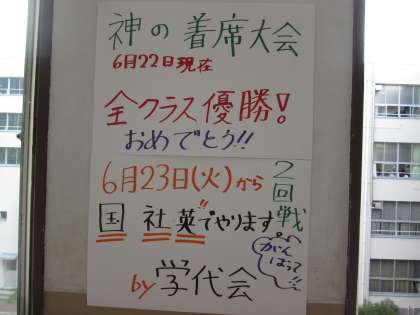 神の着席大会
6月22日現在
全クラス優勝!
おめでとう!!
6月23日(火)から
2回戦
国 社 英でやります
がんばって!!
by 学代会